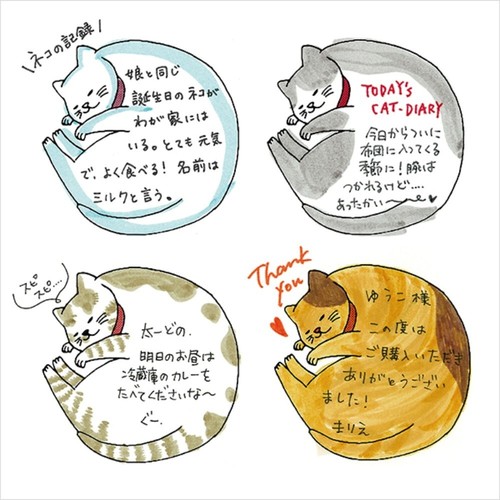 \ネコの記録/
娘と同じ
誕生日のネコが
わが家には
いる。とても元気
で、よく食べる! 名前は
ミルクと言う。
TODAY'S
CAT-DIARY
今日からついに
布団に入ってくる
季節に!腕は
つかれるけど....
あったかい〜♥
スピ
スピ....
太一どの.
明日のお昼は
冷蔵庫のカレーを
たべてくださいな〜
ぐー.
Thank
you
ゆうこ様
この度は
ご購入いただき
ありがとうござい
ました!
まりえ